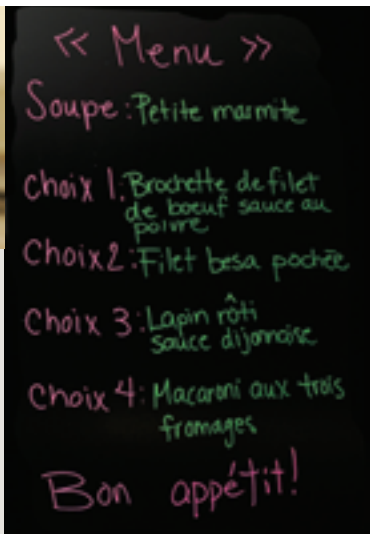 << Menu >>
Soupe: Petite marmite
Choix 1: Brochette de filet
de boeuf sauce au
poivre
Choix 2: Filet besa pochée
Choix 3: Lapin rôti
sauce dijonnoise
Choix 4: Macaroni aux trois
fromages
Bon appétit!